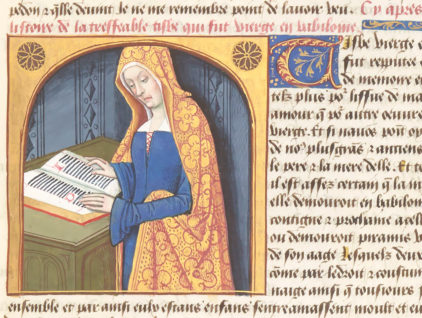 pedon et quelle devint. Je ne me remembre point de lavoir veu. Cy apres
listoire de la tresfeable tisbe qui fut vierge en babilonie
Tisbe vierge
fut reputee
de memoire
telz plus pour lissue de
amour que par autre oeuvre
vierge. Et si navons point
de noz plus grans et anciens
le pere et la mere delle. Et
il est assez certain que la
elle demouroit en babiloine
contigue et prochaine a
ou demouroit piramus
de son aage. Lesquelz deux
come par ledroit et coustume
nage ainsi que tousiours
ensemble et par ainsi eulx estans enfans sentreamassent moult et